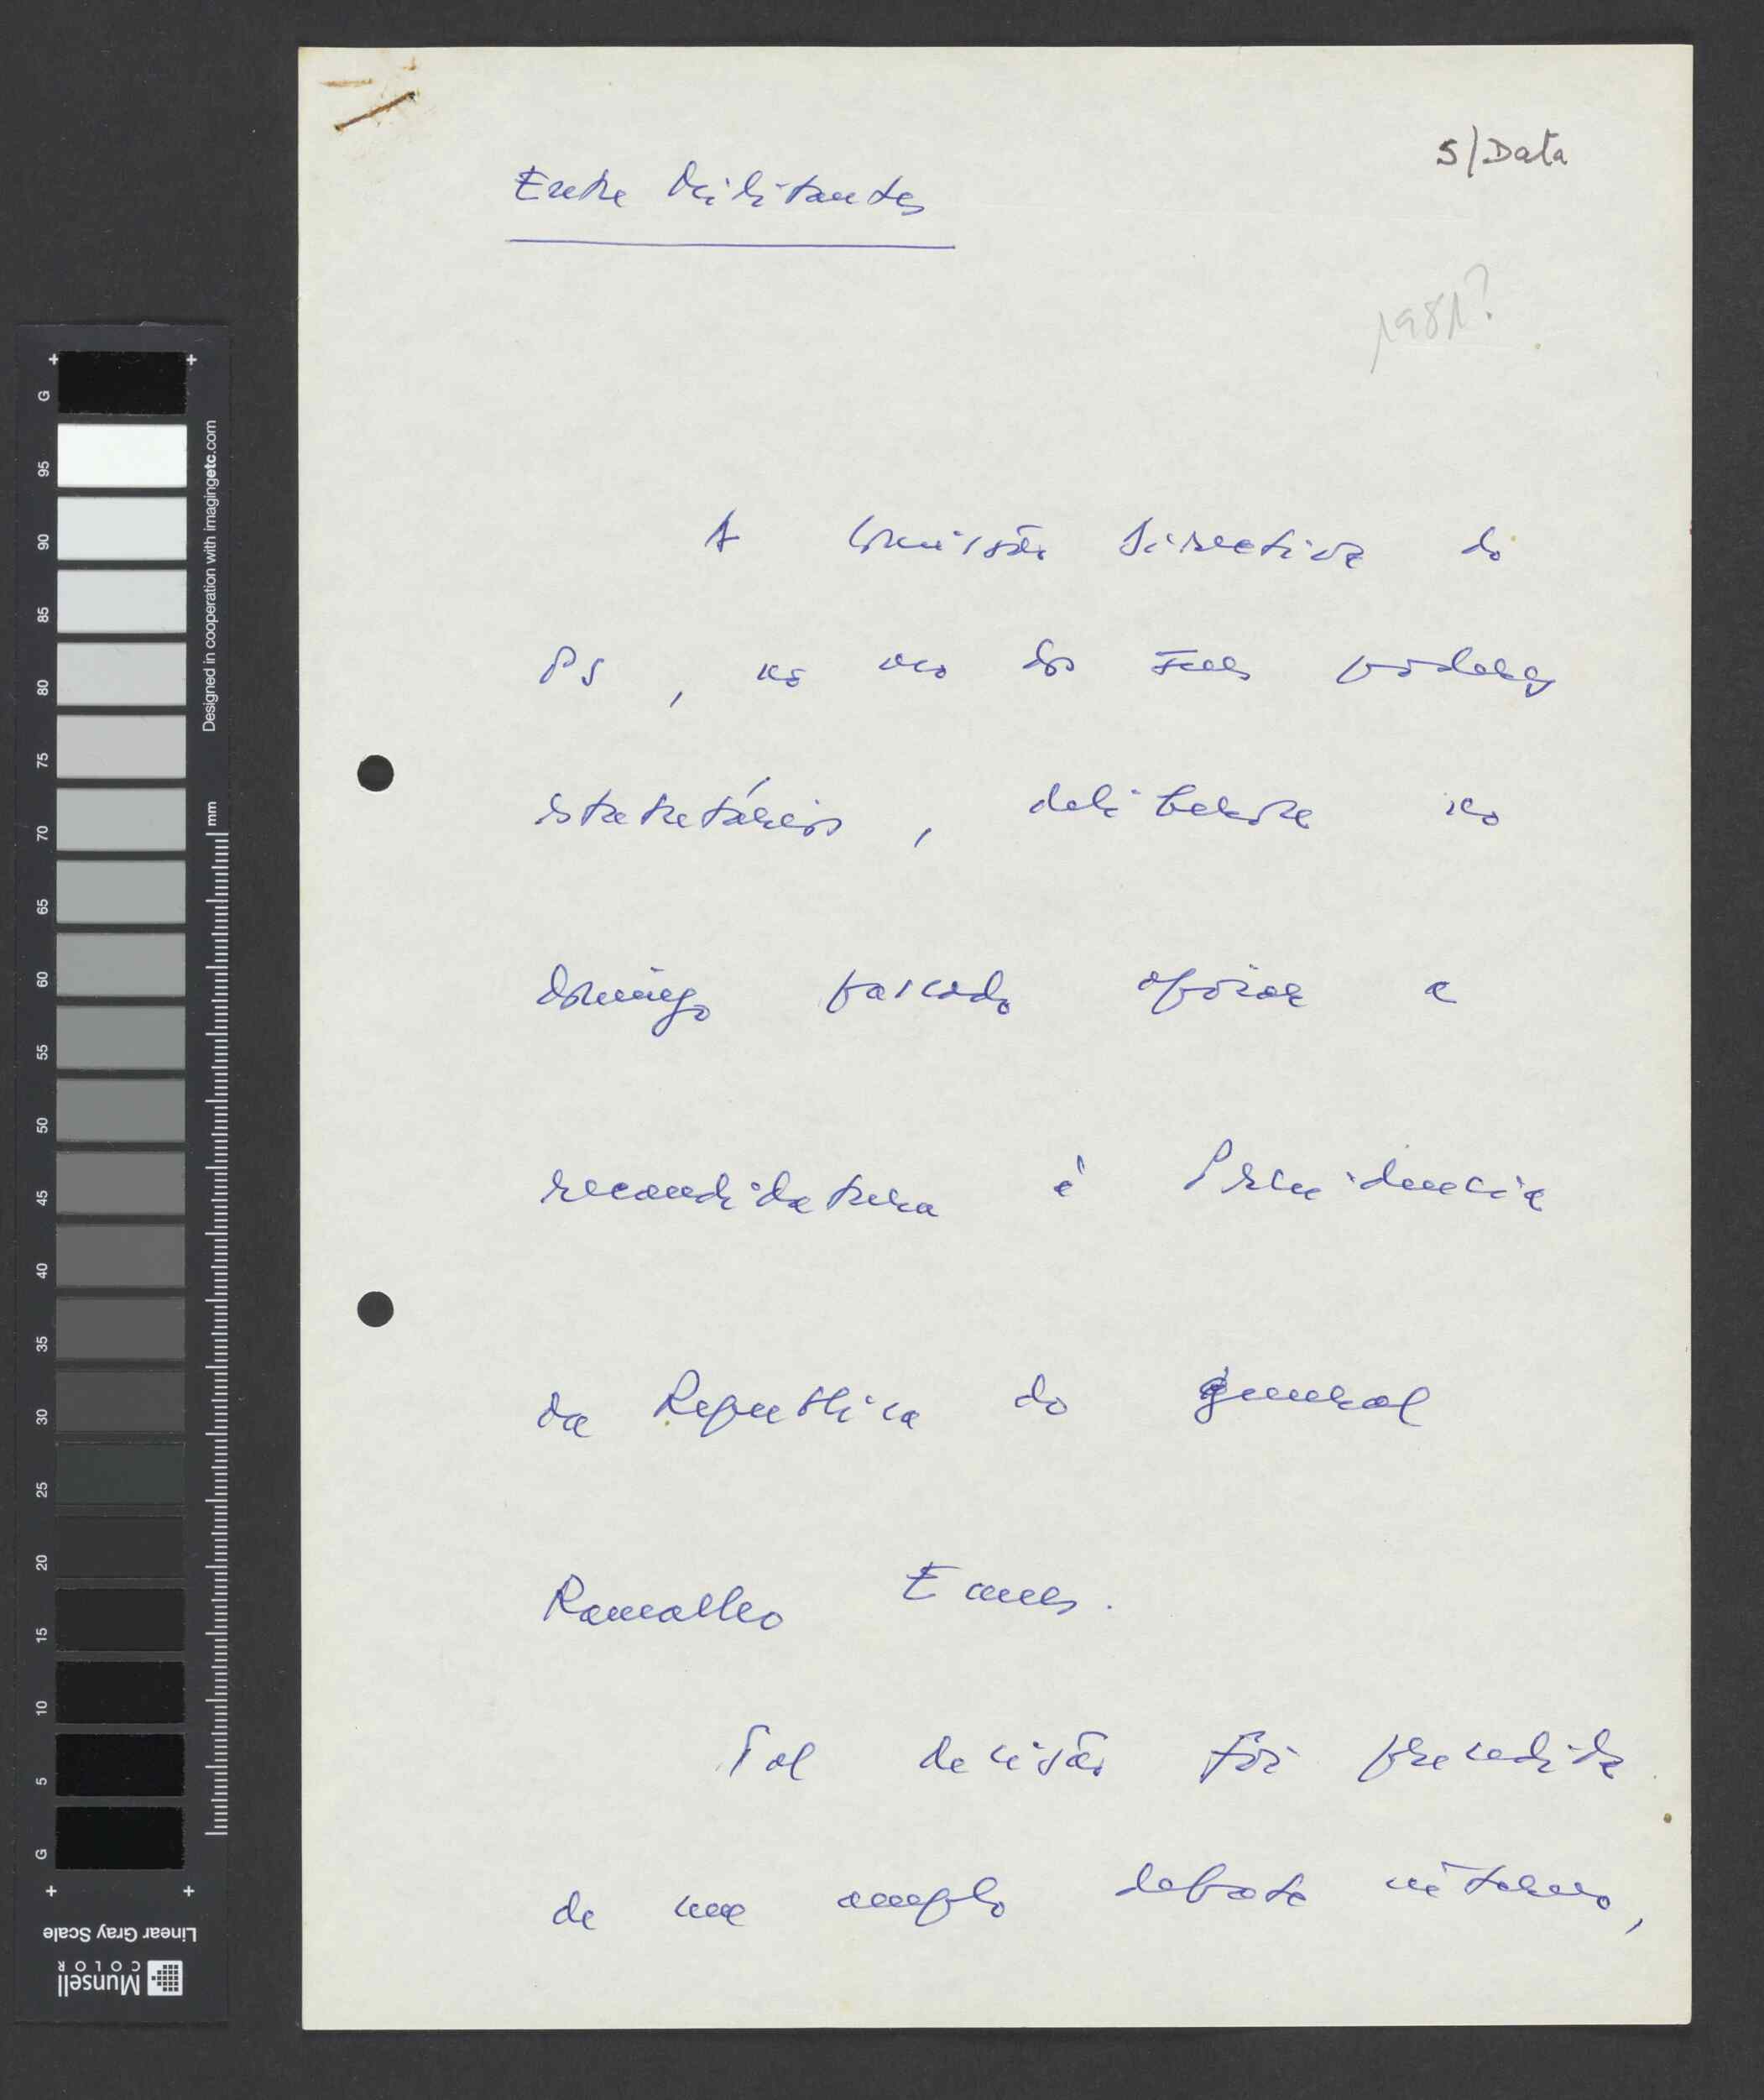 S/Data
Entre Militantes
1981?
A Comissão Directiva do
PS, no uso dos seus poderes
estatutários, deliberou no
domingo passado apoiar a
recandidatura à Presidência
da Republica do general
Ramalho Eanes.
Tal decisão foi precedida
de um amplo debate interno,
G
95
90
85
80
75
70
65
60
55
50
45
40
35
30
25
20
15
10
5
G
Designed in cooperation with imagingetc.com
mm
Linear Gray Scale
Munsell
COLOR